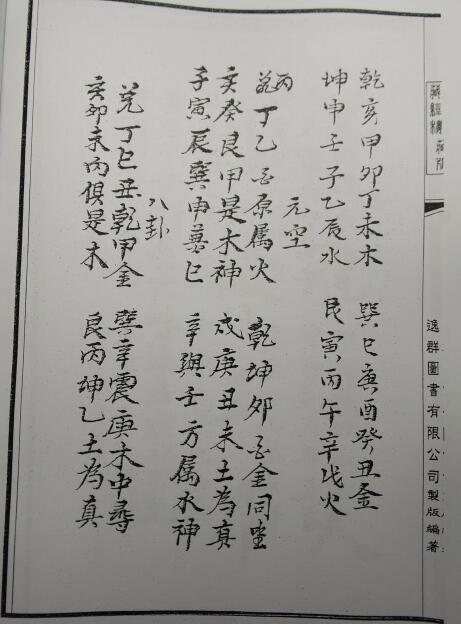 乾亥甲卯丁未木 巽巳庚酉癸丑金
坤申壬子乙辰水 艮寅丙午辛戌火
元空
丙丁乙酉原属火 乾坤卯午金同坐
亥癸艮甲是木神 戌庚丑未土為真
子寅辰巽申兼巳 辛與壬方属水神
八卦
兌丁巳丑乾甲金 巽辛震庚木中尋
亥卯未丙俱是木 艮丙坤乙土為真
逸群圖書有限公司製版編著